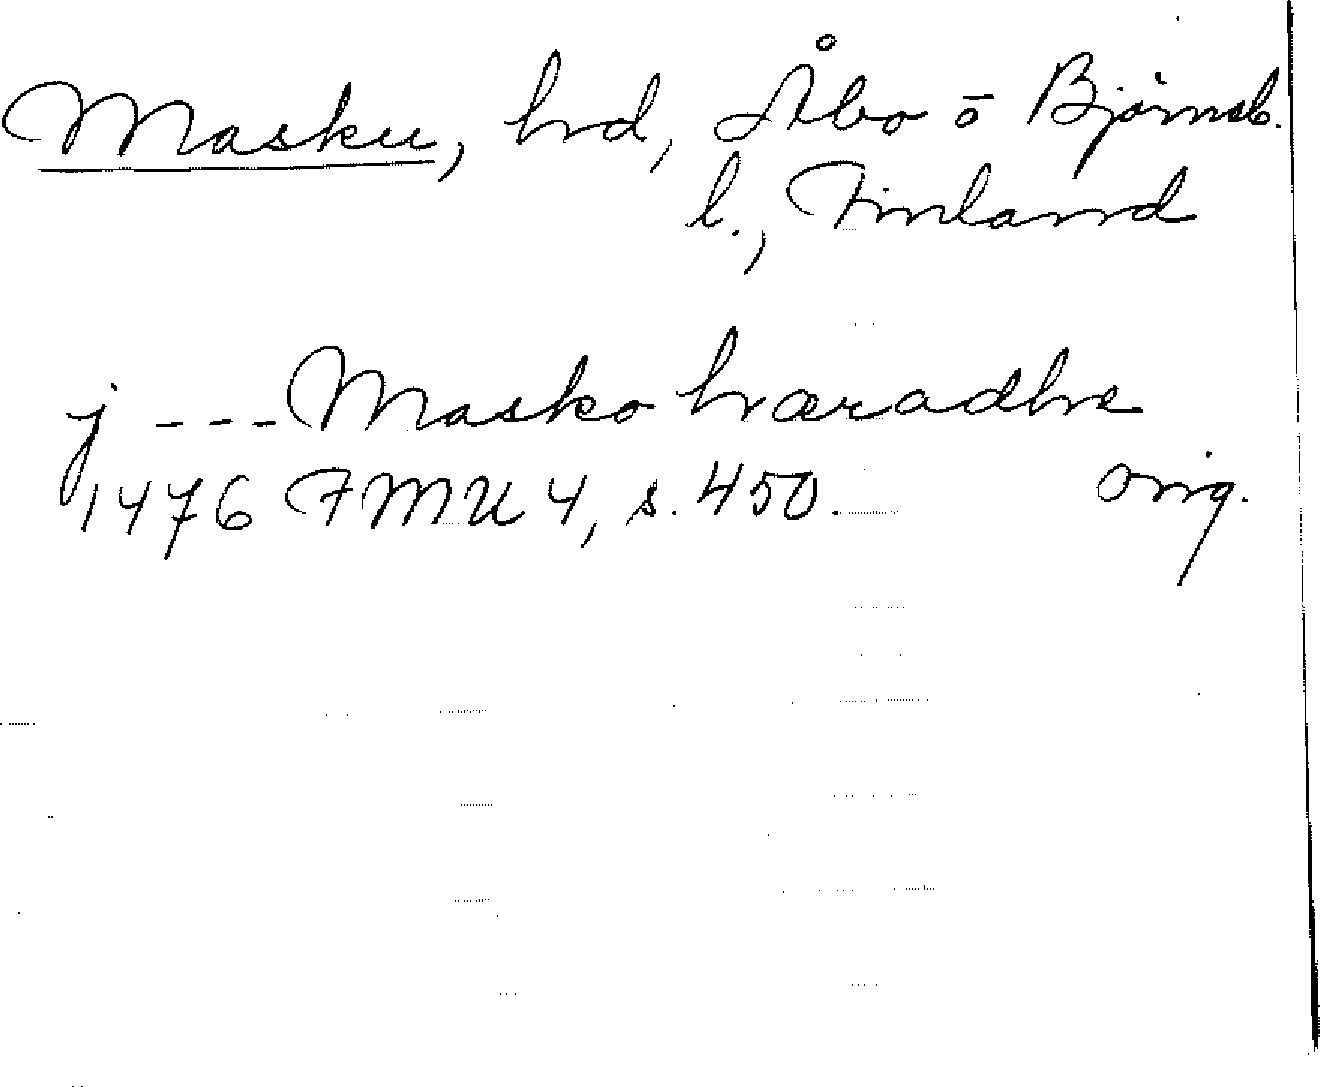 Masku, hd, Åbo o Björneb.
l., Finland
j --- Masko hæradhe
1476 FMU 4, s. 450. orig.